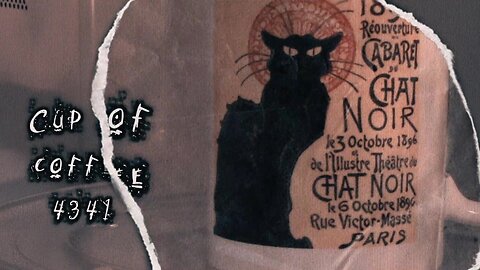 CUP OF
COFFEE
4341
189
Réouverture
du
CABARET
DU
CHAT
NOIR
le 3 Octobre 1896
et
de l'Illustre Théâtre du
CHAT NOIR
le 6 Octobre 1896
Rue Victor-Massé
PARIS